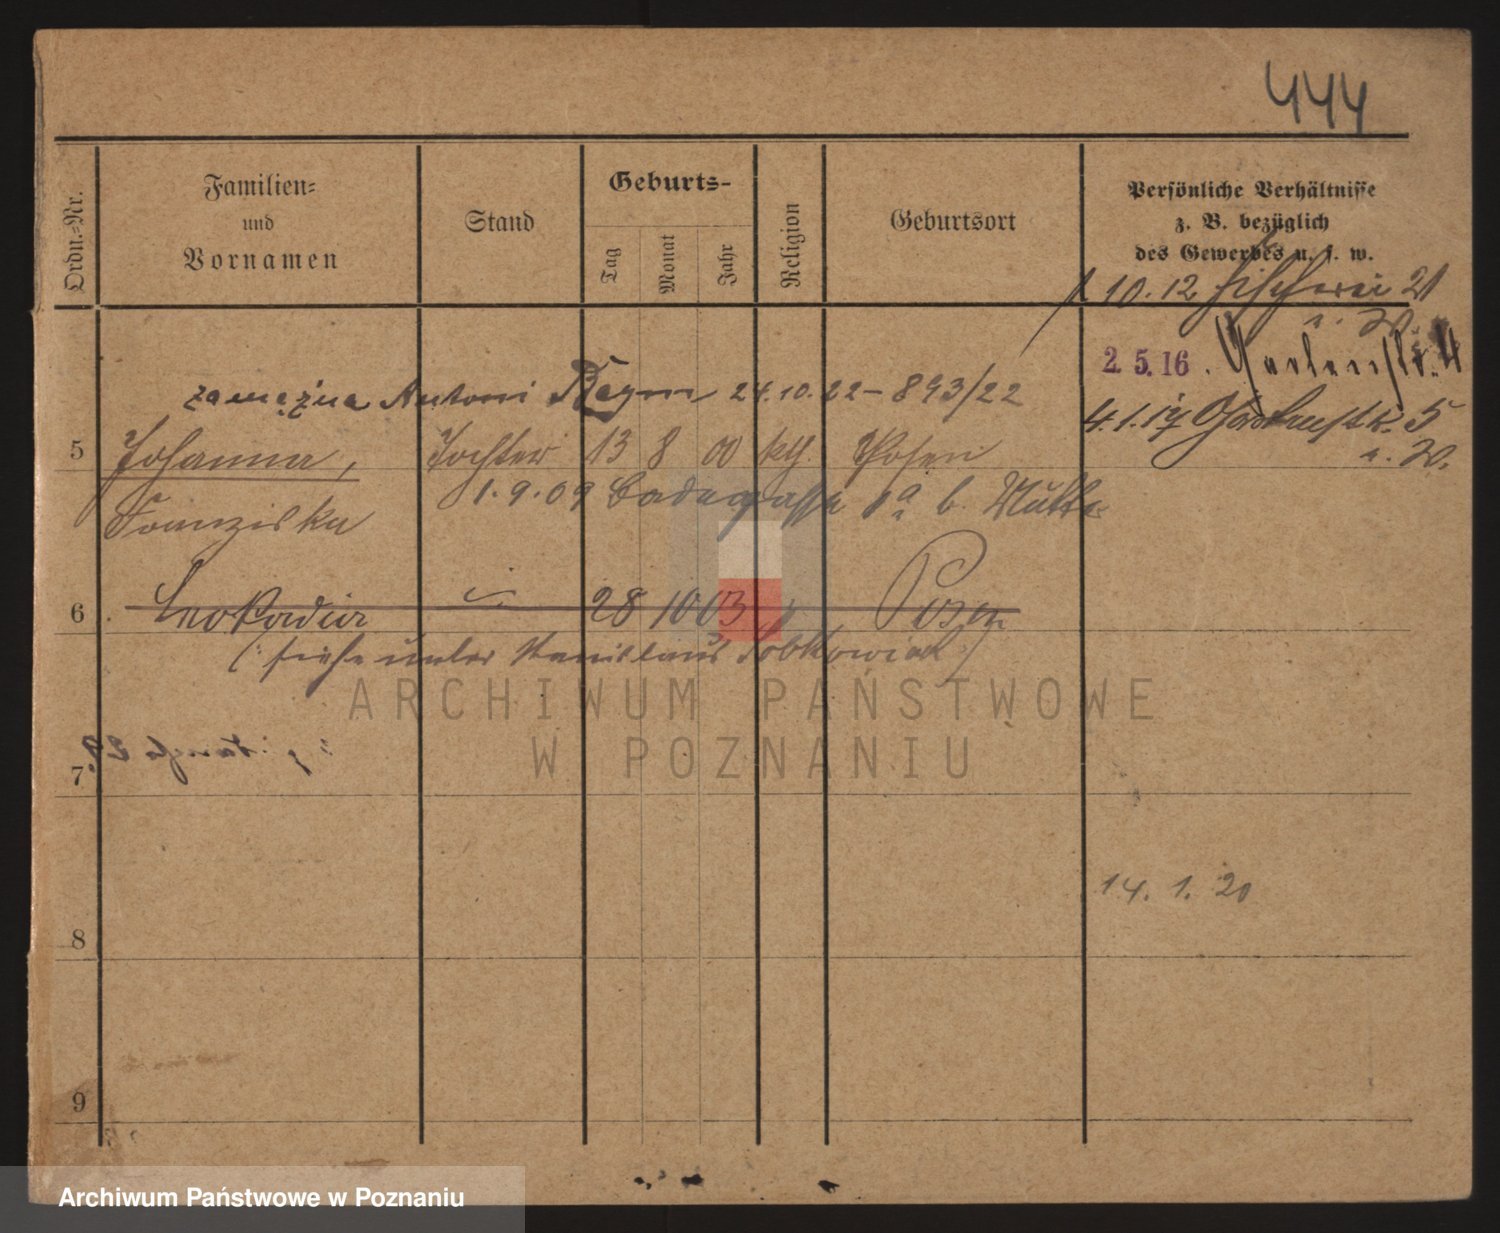 444
Ordn.-Nr.
Familien-
und
Vornamen
Stand
Geburts-
Tag
Monat
Jahr
Religion
Geburtsort
Persönliche Verhältnisse
z. B. bezüglich
des Gewerbes u. s. w.
10.12 Fischerei 21
2.5.16. Gartenstr. 4
4.1.17 Gartenstr. 5
zamężna Antoni 24.10.22 - 893/22
5 Johanna, Tochter 13 8 00 kth. Posen
1.9.09 Badegasse 1a b. Mutter
Franziska
6 Leokadia 28 10 03 Posen
(siehe unter Stanislaus Sobkowiak)
ARCHIWUM PAŃSTWOWE
W POZNANIU
7
14. 1. 20
8
9
Archiwum Państwowe w Poznaniu